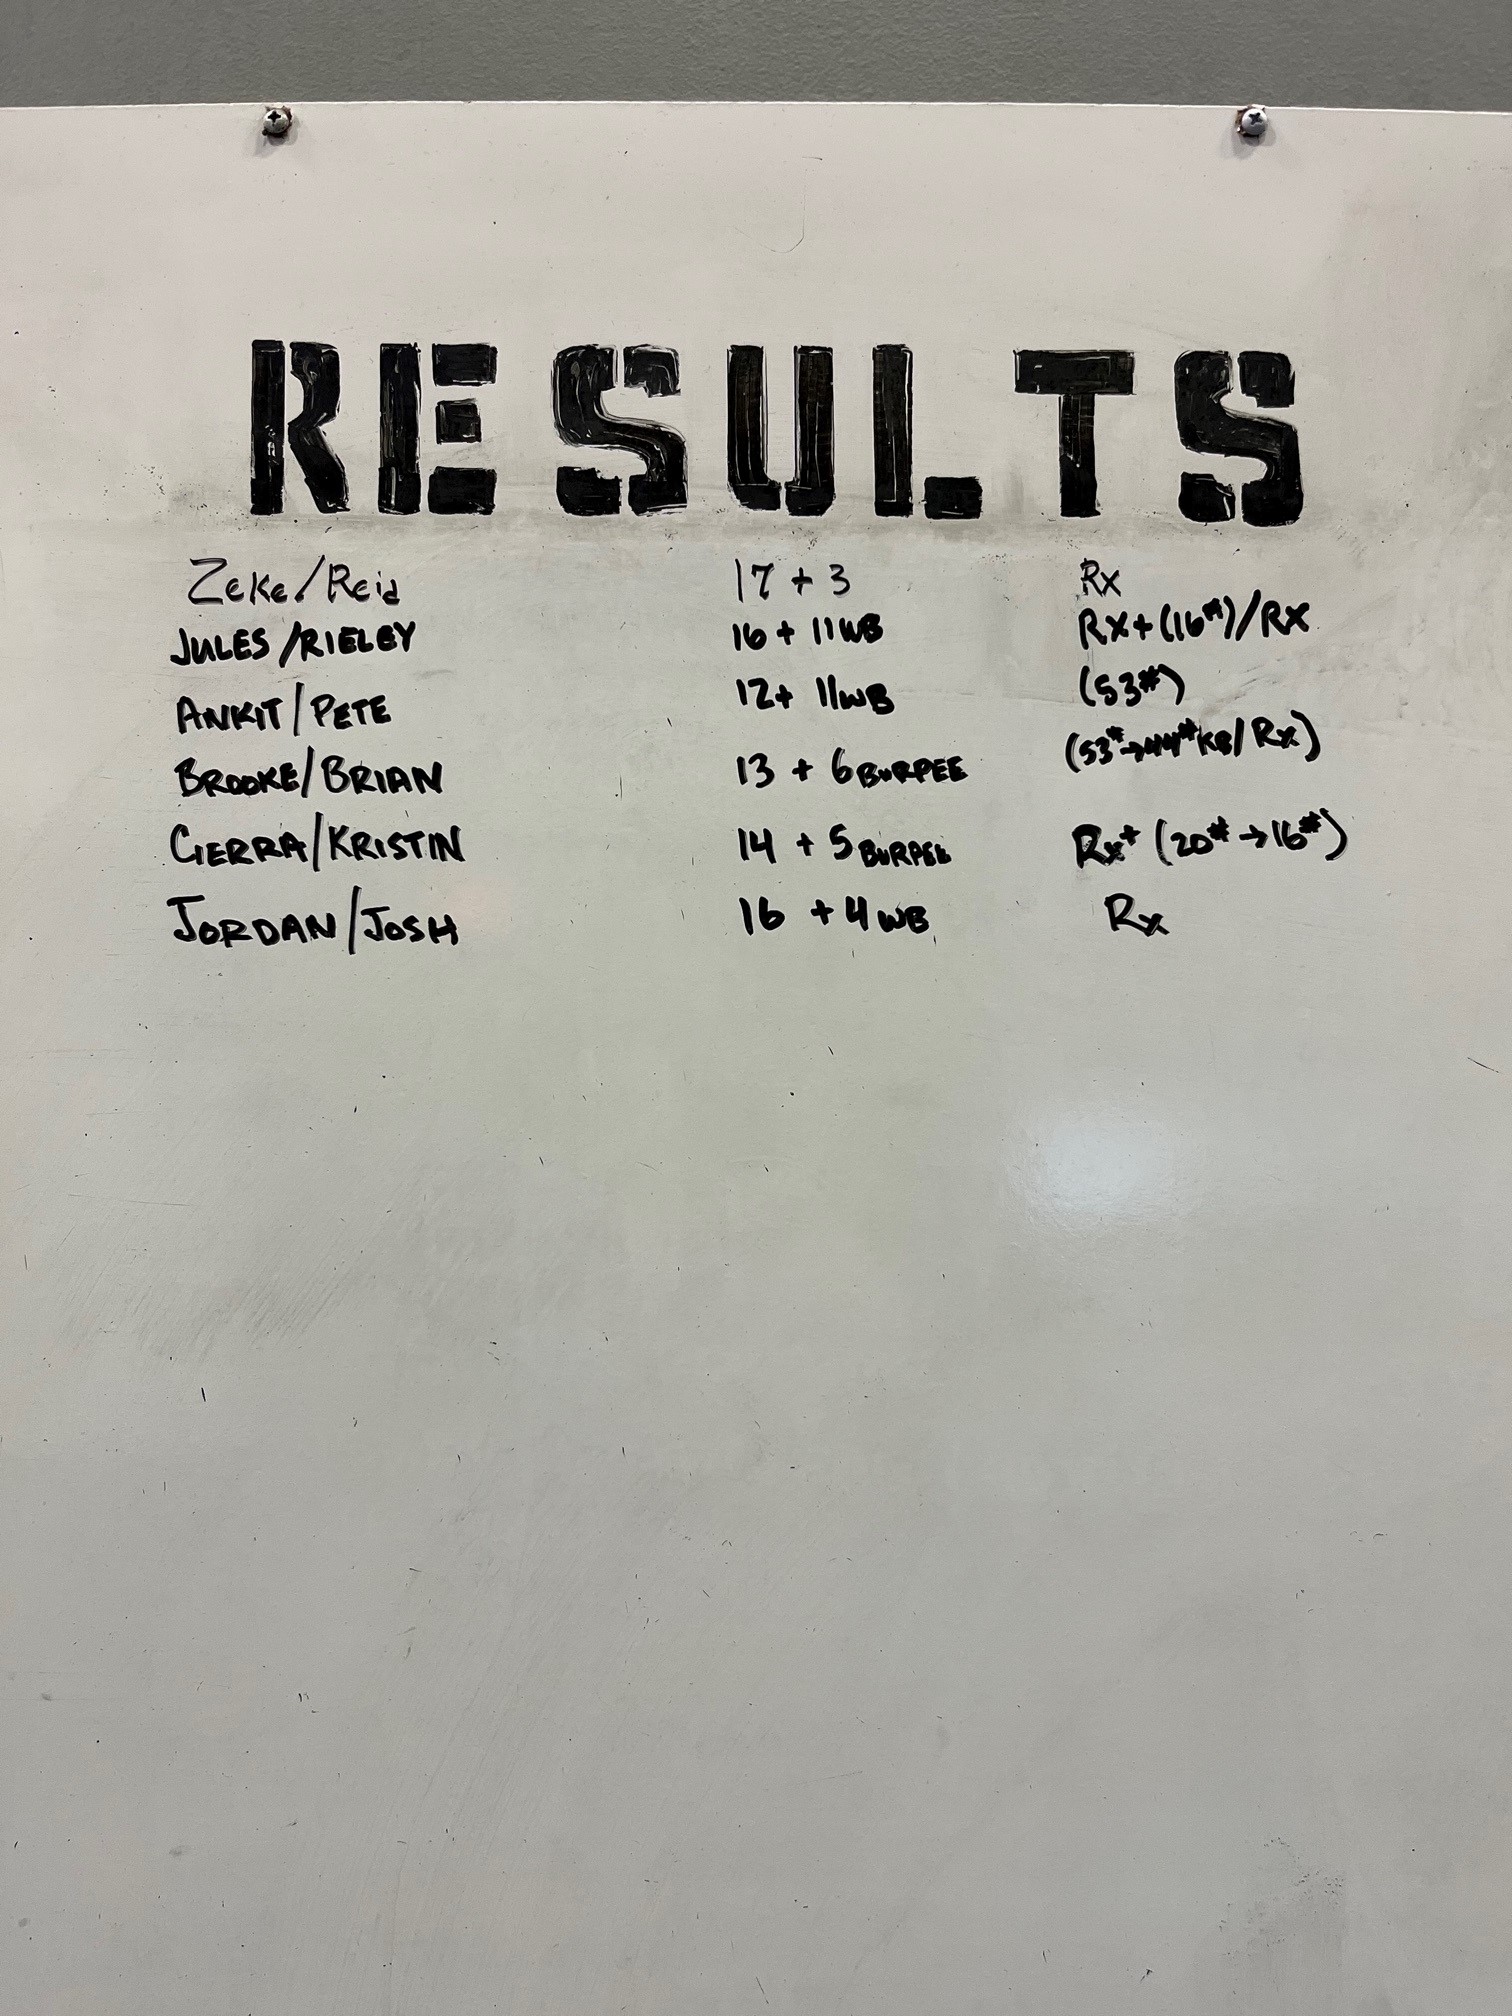 RESULTS
Zeke/Reid 17 + 3 Rx
JULES/RIELEY 16 + 11 WB RX+(16#)/RX
ANKIT/PETE 12+ 11WB (53#)
BROOKE/BRIAN 13 + 6 BURPEE (53#→44# KB/RX)
GERRA/KRISTIN 14 + 5 BURPEE Rx+ (20#→16#)
JORDAN/JOSH 16 + 4 WB Rx